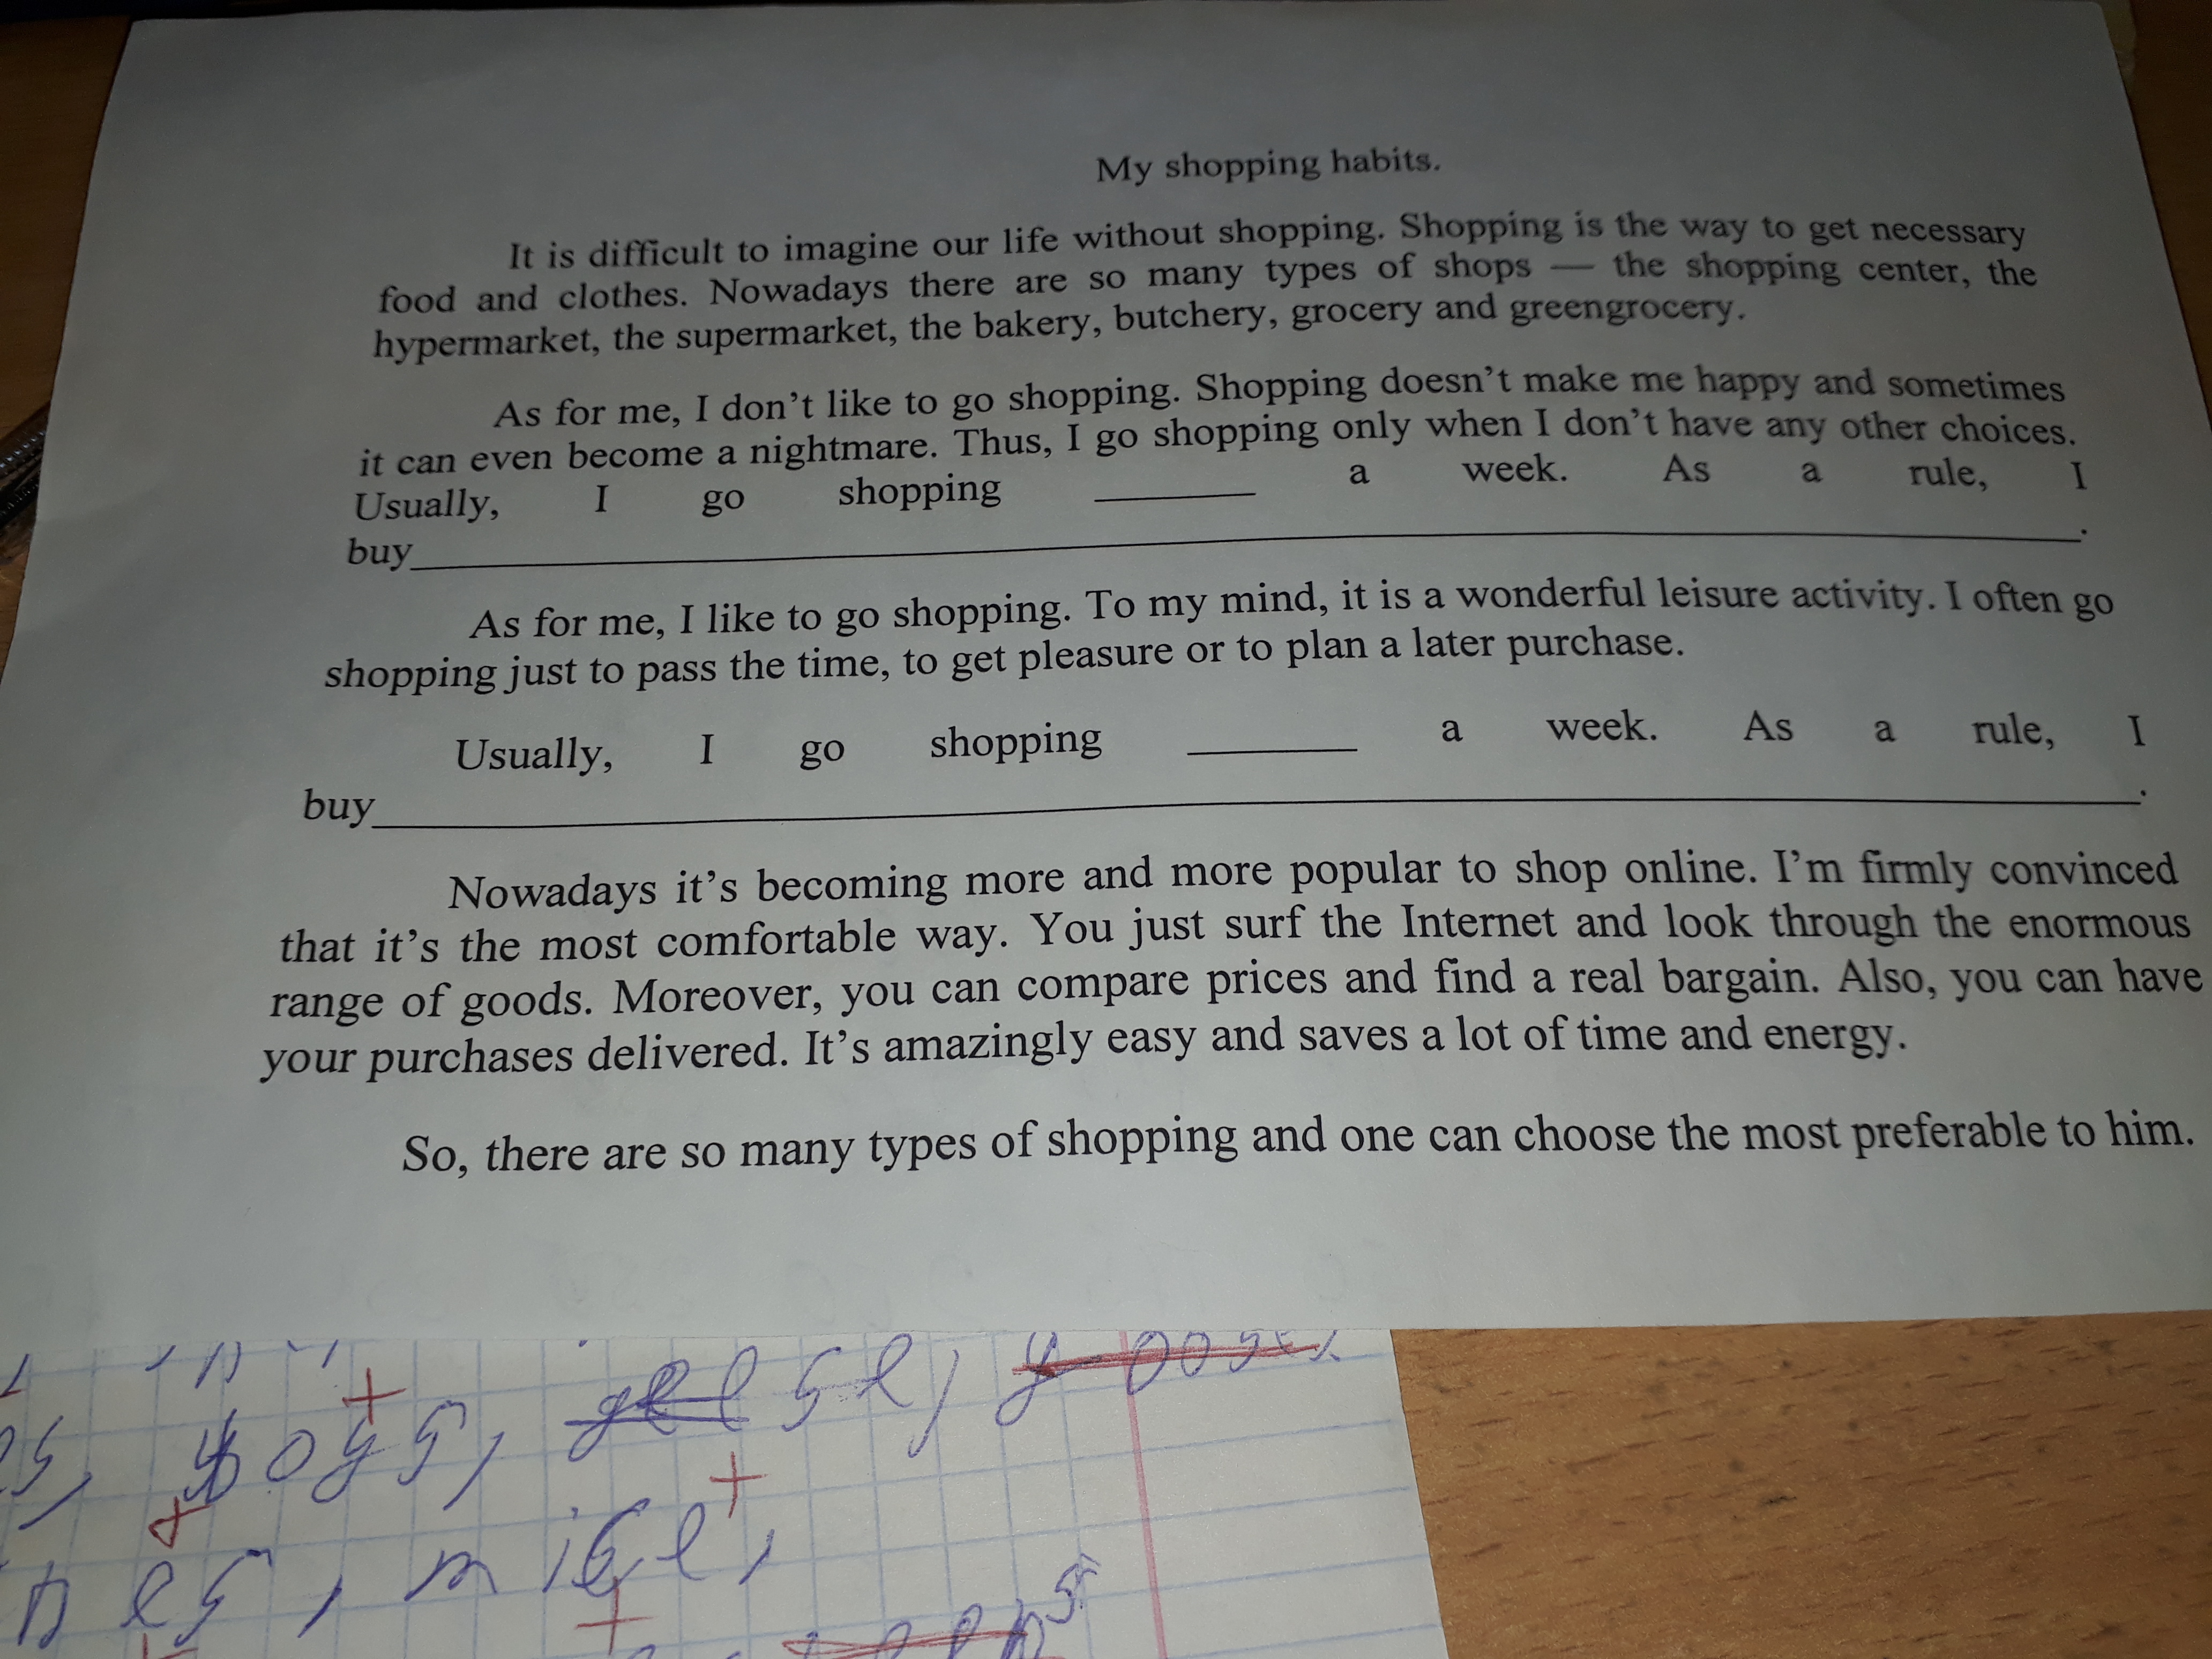 My shopping habits.
It is difficult to imagine our life without shopping. Shopping is the way to get necessary
food and clothes. Nowadays there are so many types of shops — the shopping center, the
hypermarket, the supermarket, the bakery, butchery, grocery and greengrocery.
As for me, I don't like to go shopping. Shopping doesn't make me happy and sometimes
it can even become a nightmare. Thus, I go shopping only when I don't have any other choices.
Usually, I go shopping ______ a week. As a rule, I
buy______.
As for me, I like to go shopping. To my mind, it is a wonderful leisure activity. I often go
shopping just to pass the time, to get pleasure or to plan a later purchase.
Usually, I go shopping ______ a week. As a rule, I
buy______.
Nowadays it's becoming more and more popular to shop online. I'm firmly convinced
that it's the most comfortable way. You just surf the Internet and look through the enormous
range of goods. Moreover, you can compare prices and find a real bargain. Also, you can have
your purchases delivered. It's amazingly easy and saves a lot of time and energy.
So, there are so many types of shopping and one can choose the most preferable to him.
boys,
mice,